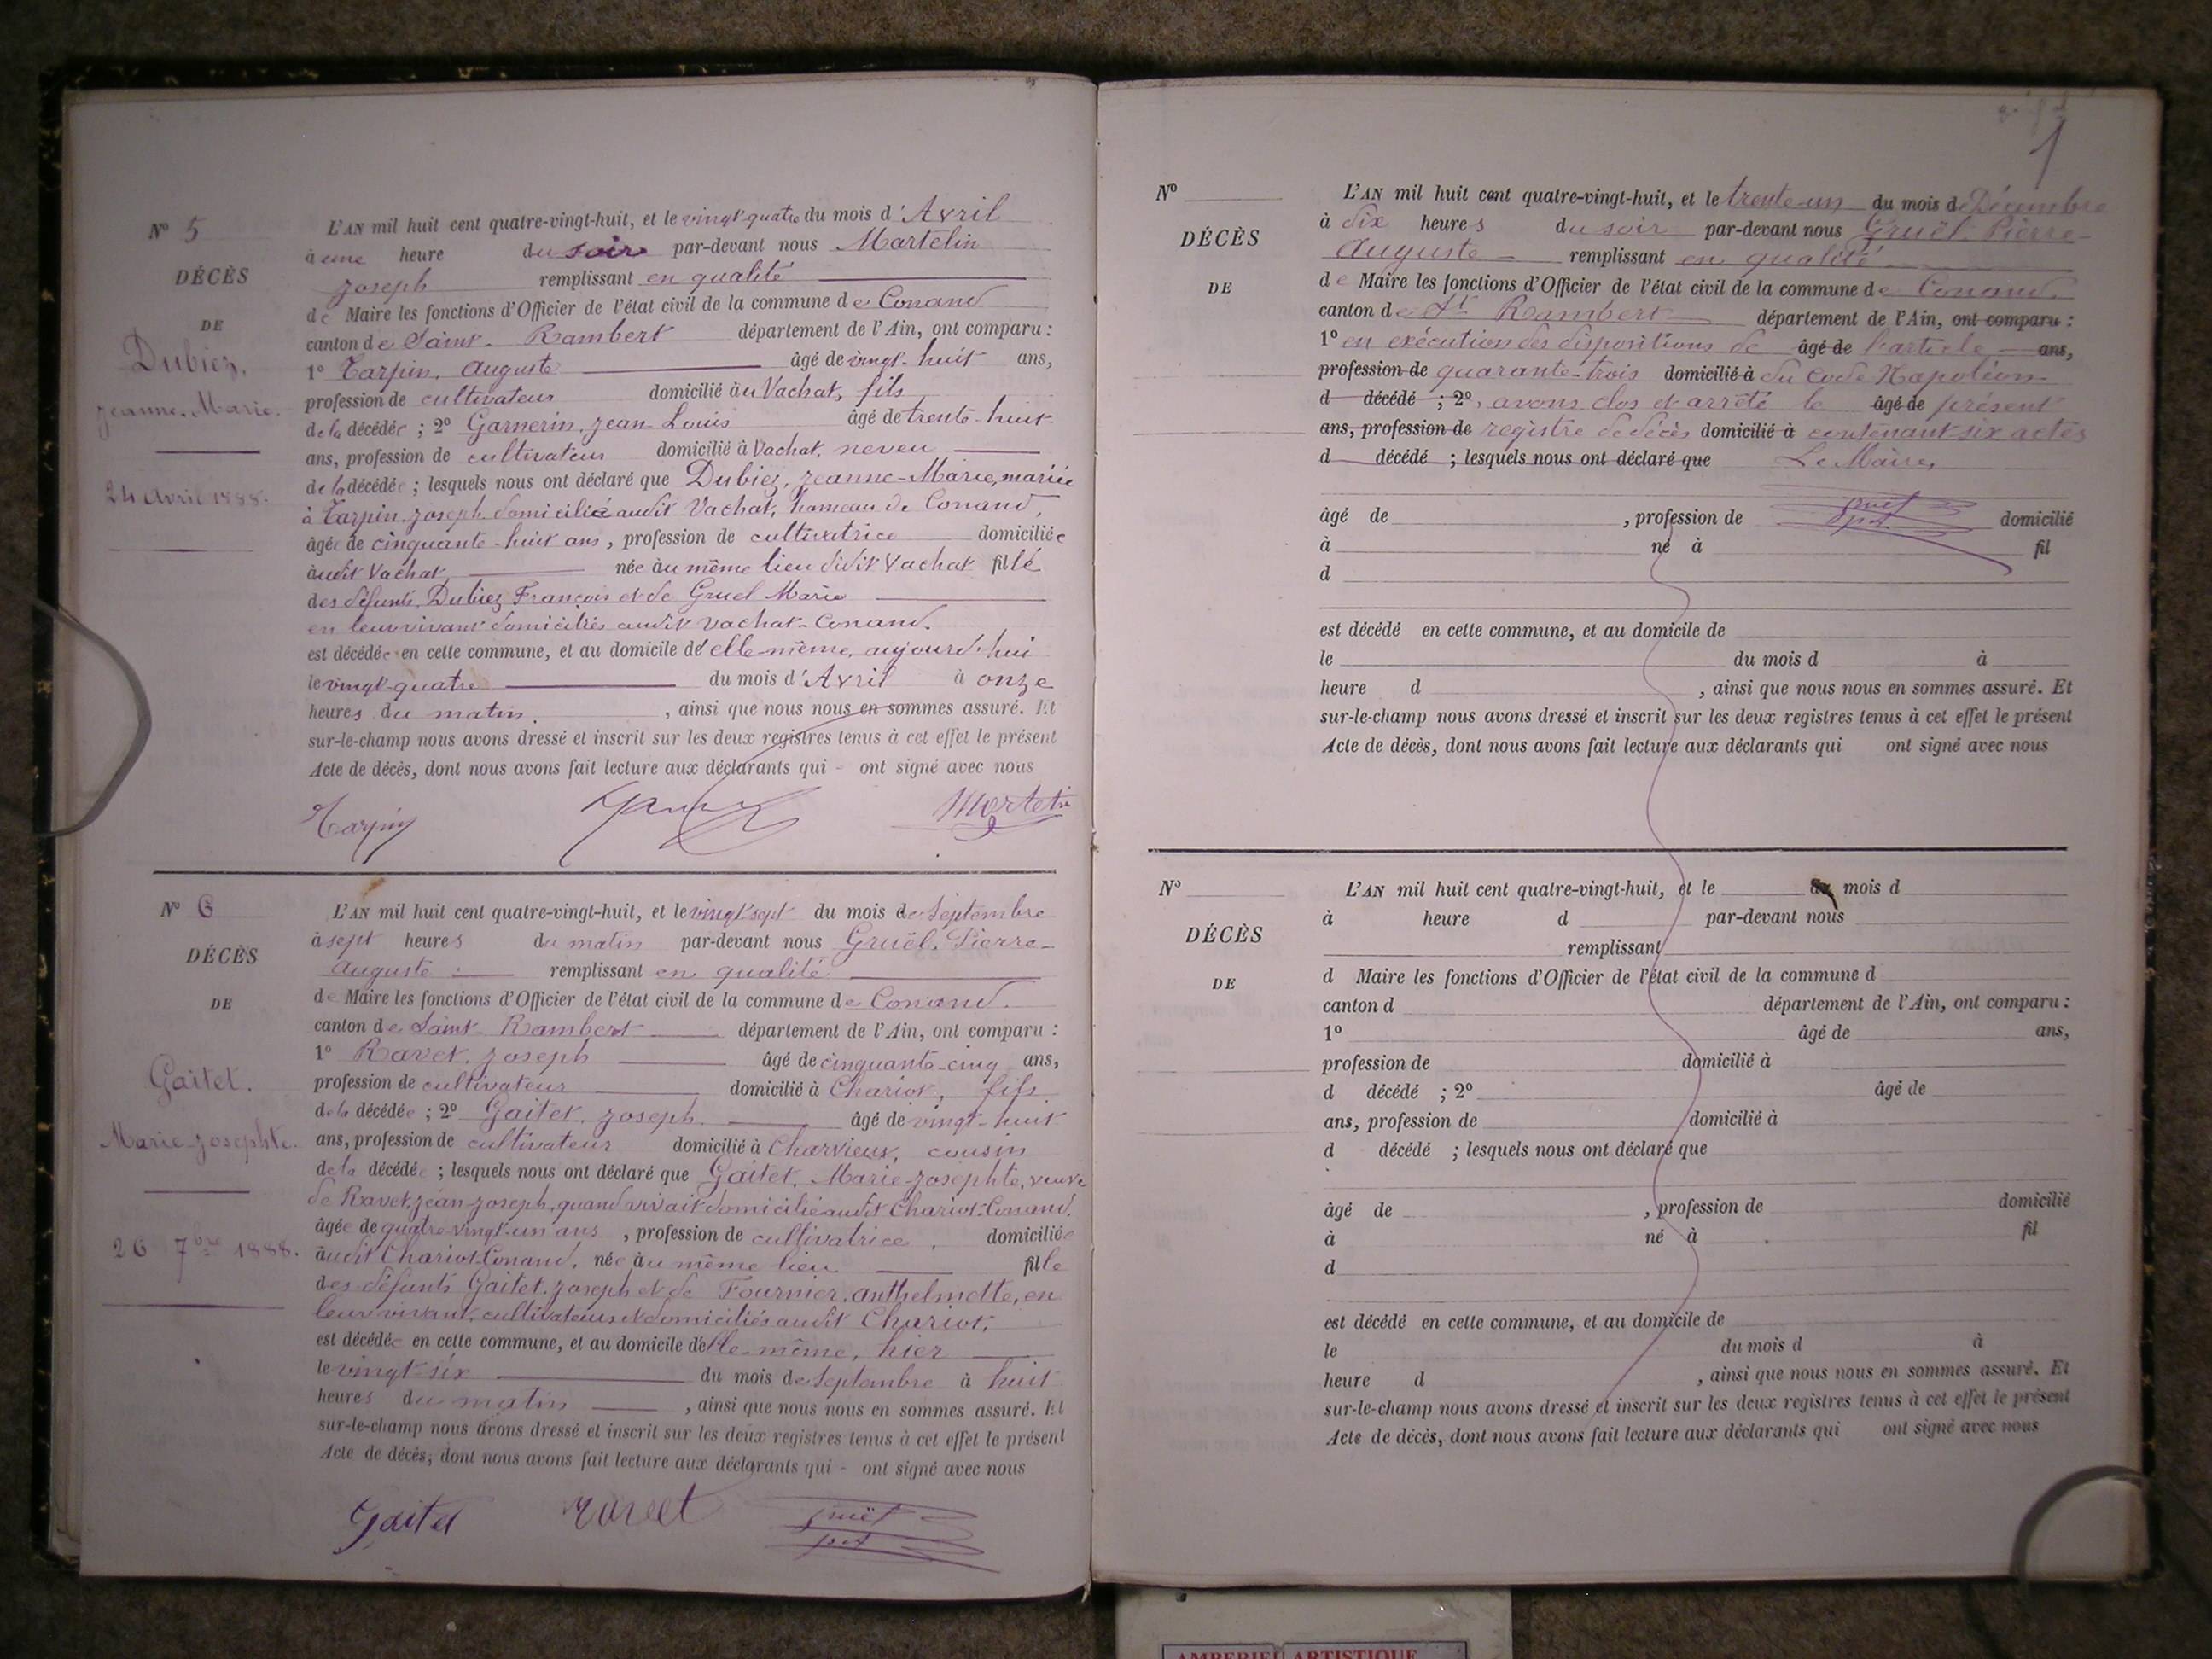 N° 5
DÉCÈS
DE
Dubiez,
Jeanne-Marie.
24 Avril 1888.
L'AN mil huit cent quatre-vingt-huit, et le vingt-quatre du mois d'Avril
à une heure du soir par-devant nous Martelin
Joseph remplissant en qualité
de Maire les fonctions d'Officier de l'état civil de la commune de Conand
canton de Saint-Rambert département de l'Ain, ont comparu :
1° Tarpin, Auguste âgé de vingt-huit ans,
profession de cultivateur domicilié au Vachat, fils
de la décédée ; 2° Garnerin, Jean-Louis âgé de trente-huit
ans, profession de cultivateur domicilié à Vachat, neveu
de la décédée ; lesquels nous ont déclaré que Dubiez, Jeanne-Marie, mariée
à Tarpin, Joseph domicilié audit Vachat, hameau de Conand,
âgée de cinquante-huit ans, profession de cultivatrice domiciliée
audit Vachat née au même lieu dudit Vachat fille
des défunts, Dubiez François et de Gruel Marie
en leur vivant domiciliés audit Vachat-Conand.
est décédée en cette commune, et au domicile d'elle-même, aujourd'hui
le vingt-quatre du mois d'Avril à onze
heures du matin. , ainsi que nous nous en sommes assuré. Et
sur-le-champ nous avons dressé et inscrit sur les deux registres tenus à cet effet le présent
Acte de décès, dont nous avons fait lecture aux déclarants qui - ont signé avec nous
Tarpin Martelin
N° 6
DÉCÈS
DE
Gaitet.
Marie-Josephte.
26 7bre 1888.
L'AN mil huit cent quatre-vingt-huit, et le vingt-sept du mois de Septembre
à sept heures du matin par-devant nous Gruël, Pierre-
Auguste remplissant en qualité
de Maire les fonctions d'Officier de l'état civil de la commune de Conand.
canton de Saint-Rambert département de l'Ain, ont comparu :
1° Ravet, Joseph âgé de cinquante-cinq ans,
profession de cultivateur domicilié à Chariot, fils
de la décédée ; 2° Gaitet, Joseph. âgé de vingt-huit
ans, profession de cultivateur domicilié à Charvieux, cousin
de la décédée ; lesquels nous ont déclaré que Gaitet, Marie-Josephte, veuve
de Ravet, Jean-Joseph, quand vivait domicilié audit Chariot-Conand.
âgée de quatre-vingt-un ans , profession de cultivatrice , domiciliée
audit Chariot-Conand, née au même lieu fille
des défunts Gaitet, Joseph et de Fournier, Anthelmette, en
leur vivant, cultivateurs et domiciliés audit Chariot,
est décédée en cette commune, et au domicile d'elle-même, hier
le vingt-six du mois de Septembre à huit
heures du matin , ainsi que nous nous en sommes assuré. Et
sur-le-champ nous avons dressé et inscrit sur les deux registres tenus à cet effet le présent
Acte de décès, dont nous avons fait lecture aux déclarants qui - ont signé avec nous
Gaitet ravet gruël
1
N°
DÉCÈS
DE
L'AN mil huit cent quatre-vingt-huit, et le trente-un du mois de Décembre
à dix heures du soir par-devant nous Gruël, Pierre-
Auguste remplissant en qualité
de Maire les fonctions d'Officier de l'état civil de la commune de Conand.
canton de St Rambert département de l'Ain, ont comparu :
1° en exécution des dispositions de âgé de l'article ans,
profession de quarante-trois domicilié à du Code Napoléon
d décédé ; 2°, avons clos et arrêté le âgé de présent
ans, profession de registre de décès domicilié à contenant six actes
d décédé ; lesquels nous ont déclaré que Le Maire,
gruël
âgé de , profession de domicilié
à né à fil
d
est décédé en cette commune, et au domicile de
le du mois d à
heure d , ainsi que nous nous en sommes assuré. Et
sur-le-champ nous avons dressé et inscrit sur les deux registres tenus à cet effet le présent
Acte de décès, dont nous avons fait lecture aux déclarants qui ont signé avec nous
N°
DÉCÈS
DE
L'AN mil huit cent quatre-vingt-huit, et le du mois d
à heure d par-devant nous
remplissant
d Maire les fonctions d'Officier de l'état civil de la commune d
canton d département de l'Ain, ont comparu :
1° âgé de ans,
profession de domicilié à
d décédé ; 2° âgé de
ans, profession de domicilié à
d décédé ; lesquels nous ont déclaré que
âgé de , profession de domicilié
à né à fil
d
est décédé en cette commune, et au domicile de
le du mois d à
heure d , ainsi que nous nous en sommes assuré. Et
sur-le-champ nous avons dressé et inscrit sur les deux registres tenus à cet effet le présent
Acte de décès, dont nous avons fait lecture aux déclarants qui ont signé avec nous
AMBERIEU ARTISTIQUE